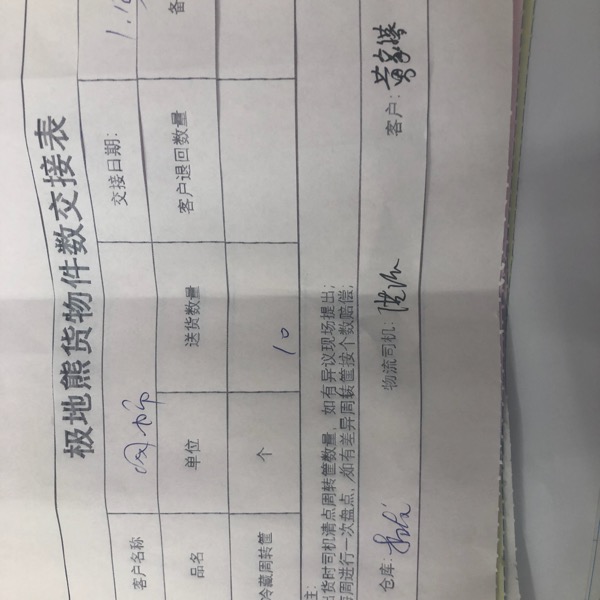 极地熊货物件数交接表
客户名称 交接日期:
品名 单位 送货数量 客户退回数量 备
冷藏周转筐 个 10
注:
出货时司机清点周转筐数量，如有异议现场提出;
每周进行一次盘点，如有差异周转筐按个数赔偿;
仓库: 物流司机: 客户: